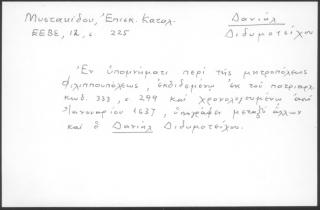 Μυστακίδου, Ἐπισκ. Καταλ.
ΕΕΒΣ, 12, σ. 225
Δανιήλ
Διδυμοτείχου
Ἐν ὑπομνήματι περὶ τῆς μητροπόλεως
Φιλιππουπόλεως, ἐκδιδομένῳ ἐκ τοῦ πατριαρχ.
κωδ. 333, σ. 299 καὶ χρονολογουμένῳ ἀπὸ
Ἰανουαρίου 1637, ὑπογράφει μεταξὺ ἄλλων
καὶ ὁ Δανιήλ Διδυμοτείχου.